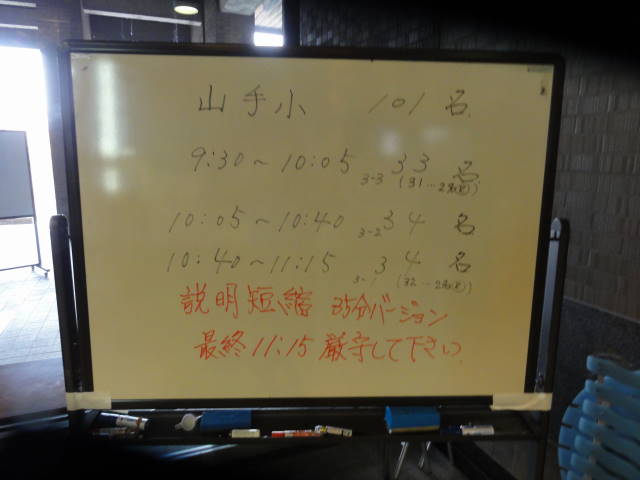 山手小 101名
9:30～10:05 33名
3-3
10:05～10:40 3-2 34名
10:40～11:15 3-1 34名
説明短縮 35分バージョン
最終11:15厳守して下さい